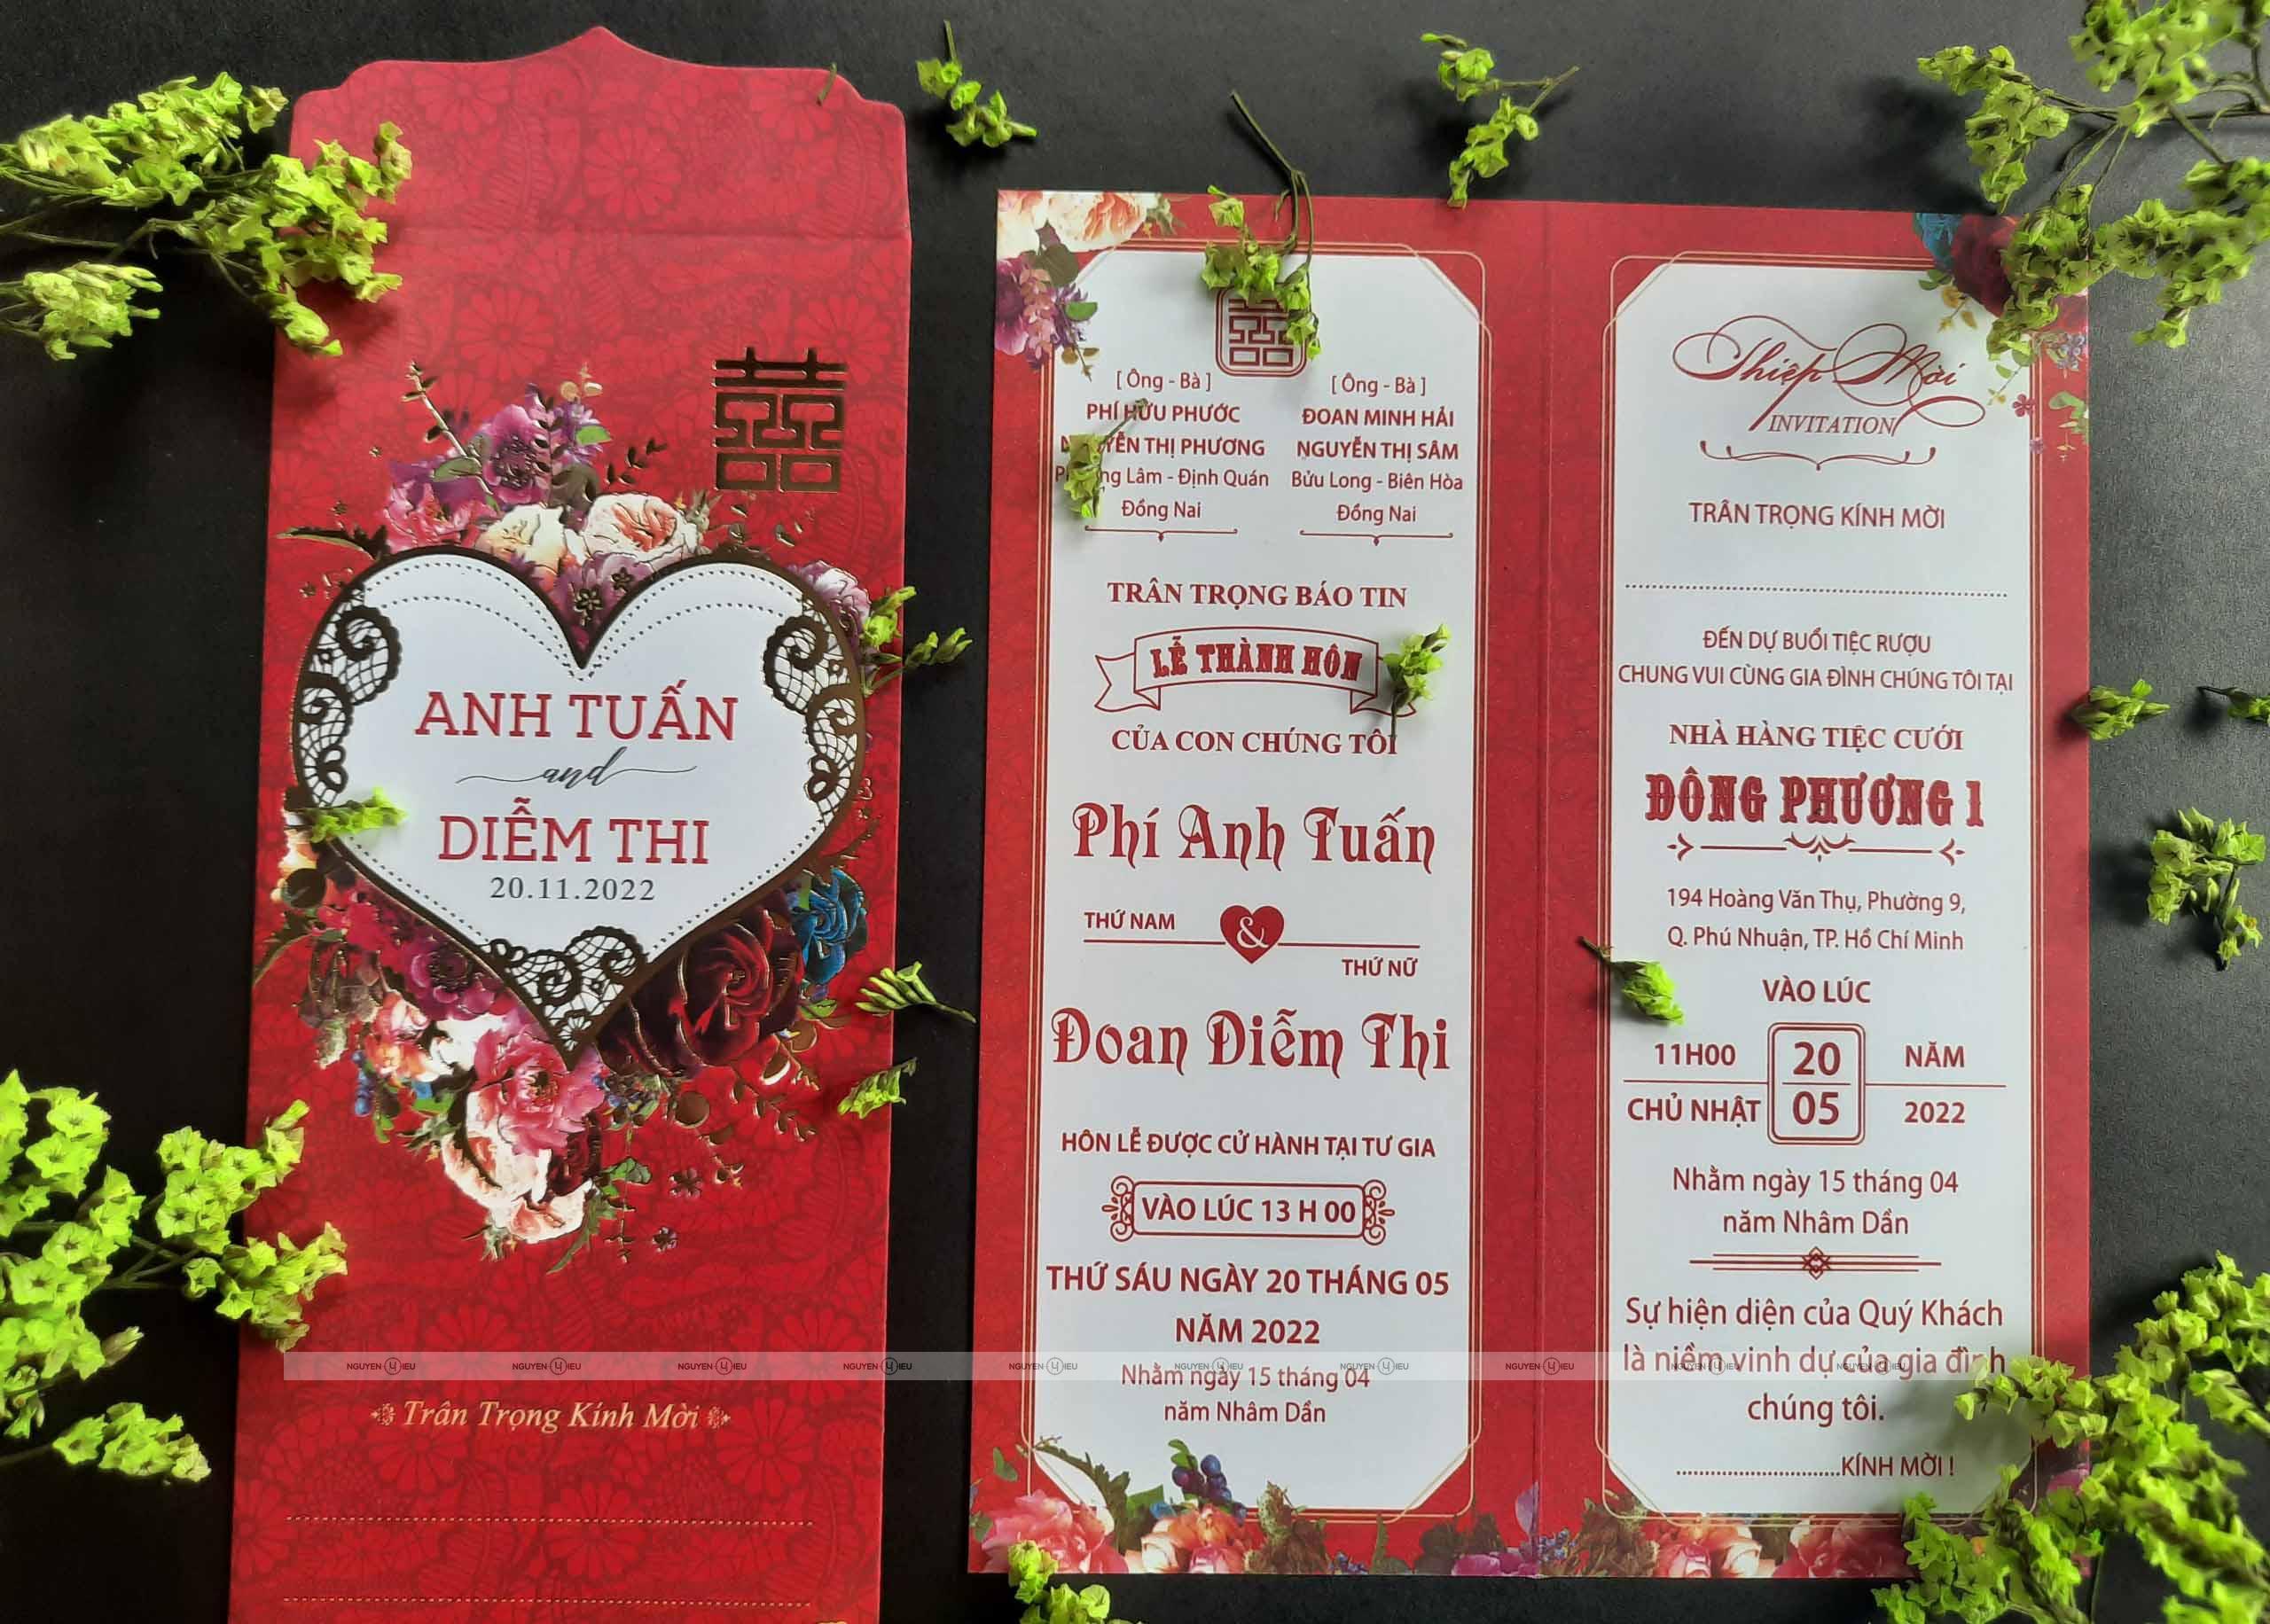 囍
ANH TUẤN
and
DIỄM THI
20.11.2022
Trân Trọng Kính Mời
[ Ông - Bà ]
PHÍ HỮU PHƯỚC
THỊ PHƯƠNG
Lâm - Định Quán
Đồng Nai
[ Ông - Bà ]
ĐOAN MINH HẢI
NGUYỄN THỊ SÂM
Bửu Long - Biên Hòa
Đồng Nai
TRÂN TRỌNG BÁO TIN
LỄ THÀNH HÔN
CỦA CON CHÚNG TÔI
Phí Anh Tuấn
THỨ NAM
&
THỨ NỮ
Đoan Diễm Thi
HÔN LỄ ĐƯỢC CỬ HÀNH TẠI TƯ GIA
VÀO LÚC 13 H 00
THỨ SÁU NGÀY 20 THÁNG 05
NĂM 2022
Nhằm ngày 15 tháng 04
năm Nhâm Dần
Thiệp Mời
INVITATION
TRÂN TRỌNG KÍNH MỜI
ĐẾN DỰ BUỔI TIỆC RƯỢU
CHUNG VUI CÙNG GIA ĐÌNH CHÚNG TÔI TẠI
NHÀ HÀNG TIỆC CƯỚI
ĐÔNG PHƯƠNG 1
194 Hoàng Văn Thụ, Phường 9,
Q. Phú Nhuận, TP. Hồ Chí Minh
VÀO LÚC
11H00 20 NĂM
CHỦ NHẬT 05 2022
Nhằm ngày 15 tháng 04
năm Nhâm Dần
Sự hiện diện của Quý Khách
là niềm vinh dự của gia đình
chúng tôi.
............................KÍNH MỜI !